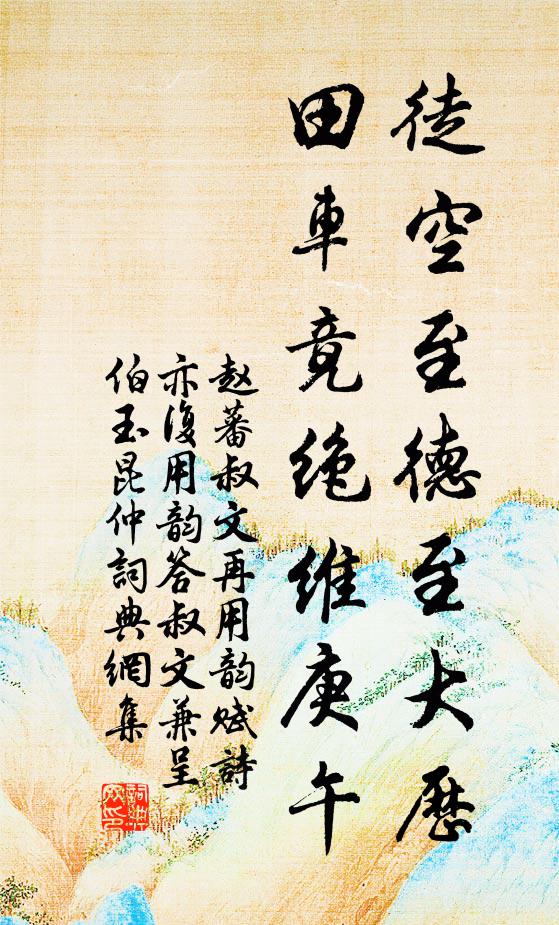 徒空至德至大歷
田車竟絶維庚午
赵蕃叔文再用韵赋詩
亦復用韵答叔文兼呈
伯玉昆仲詞典網集